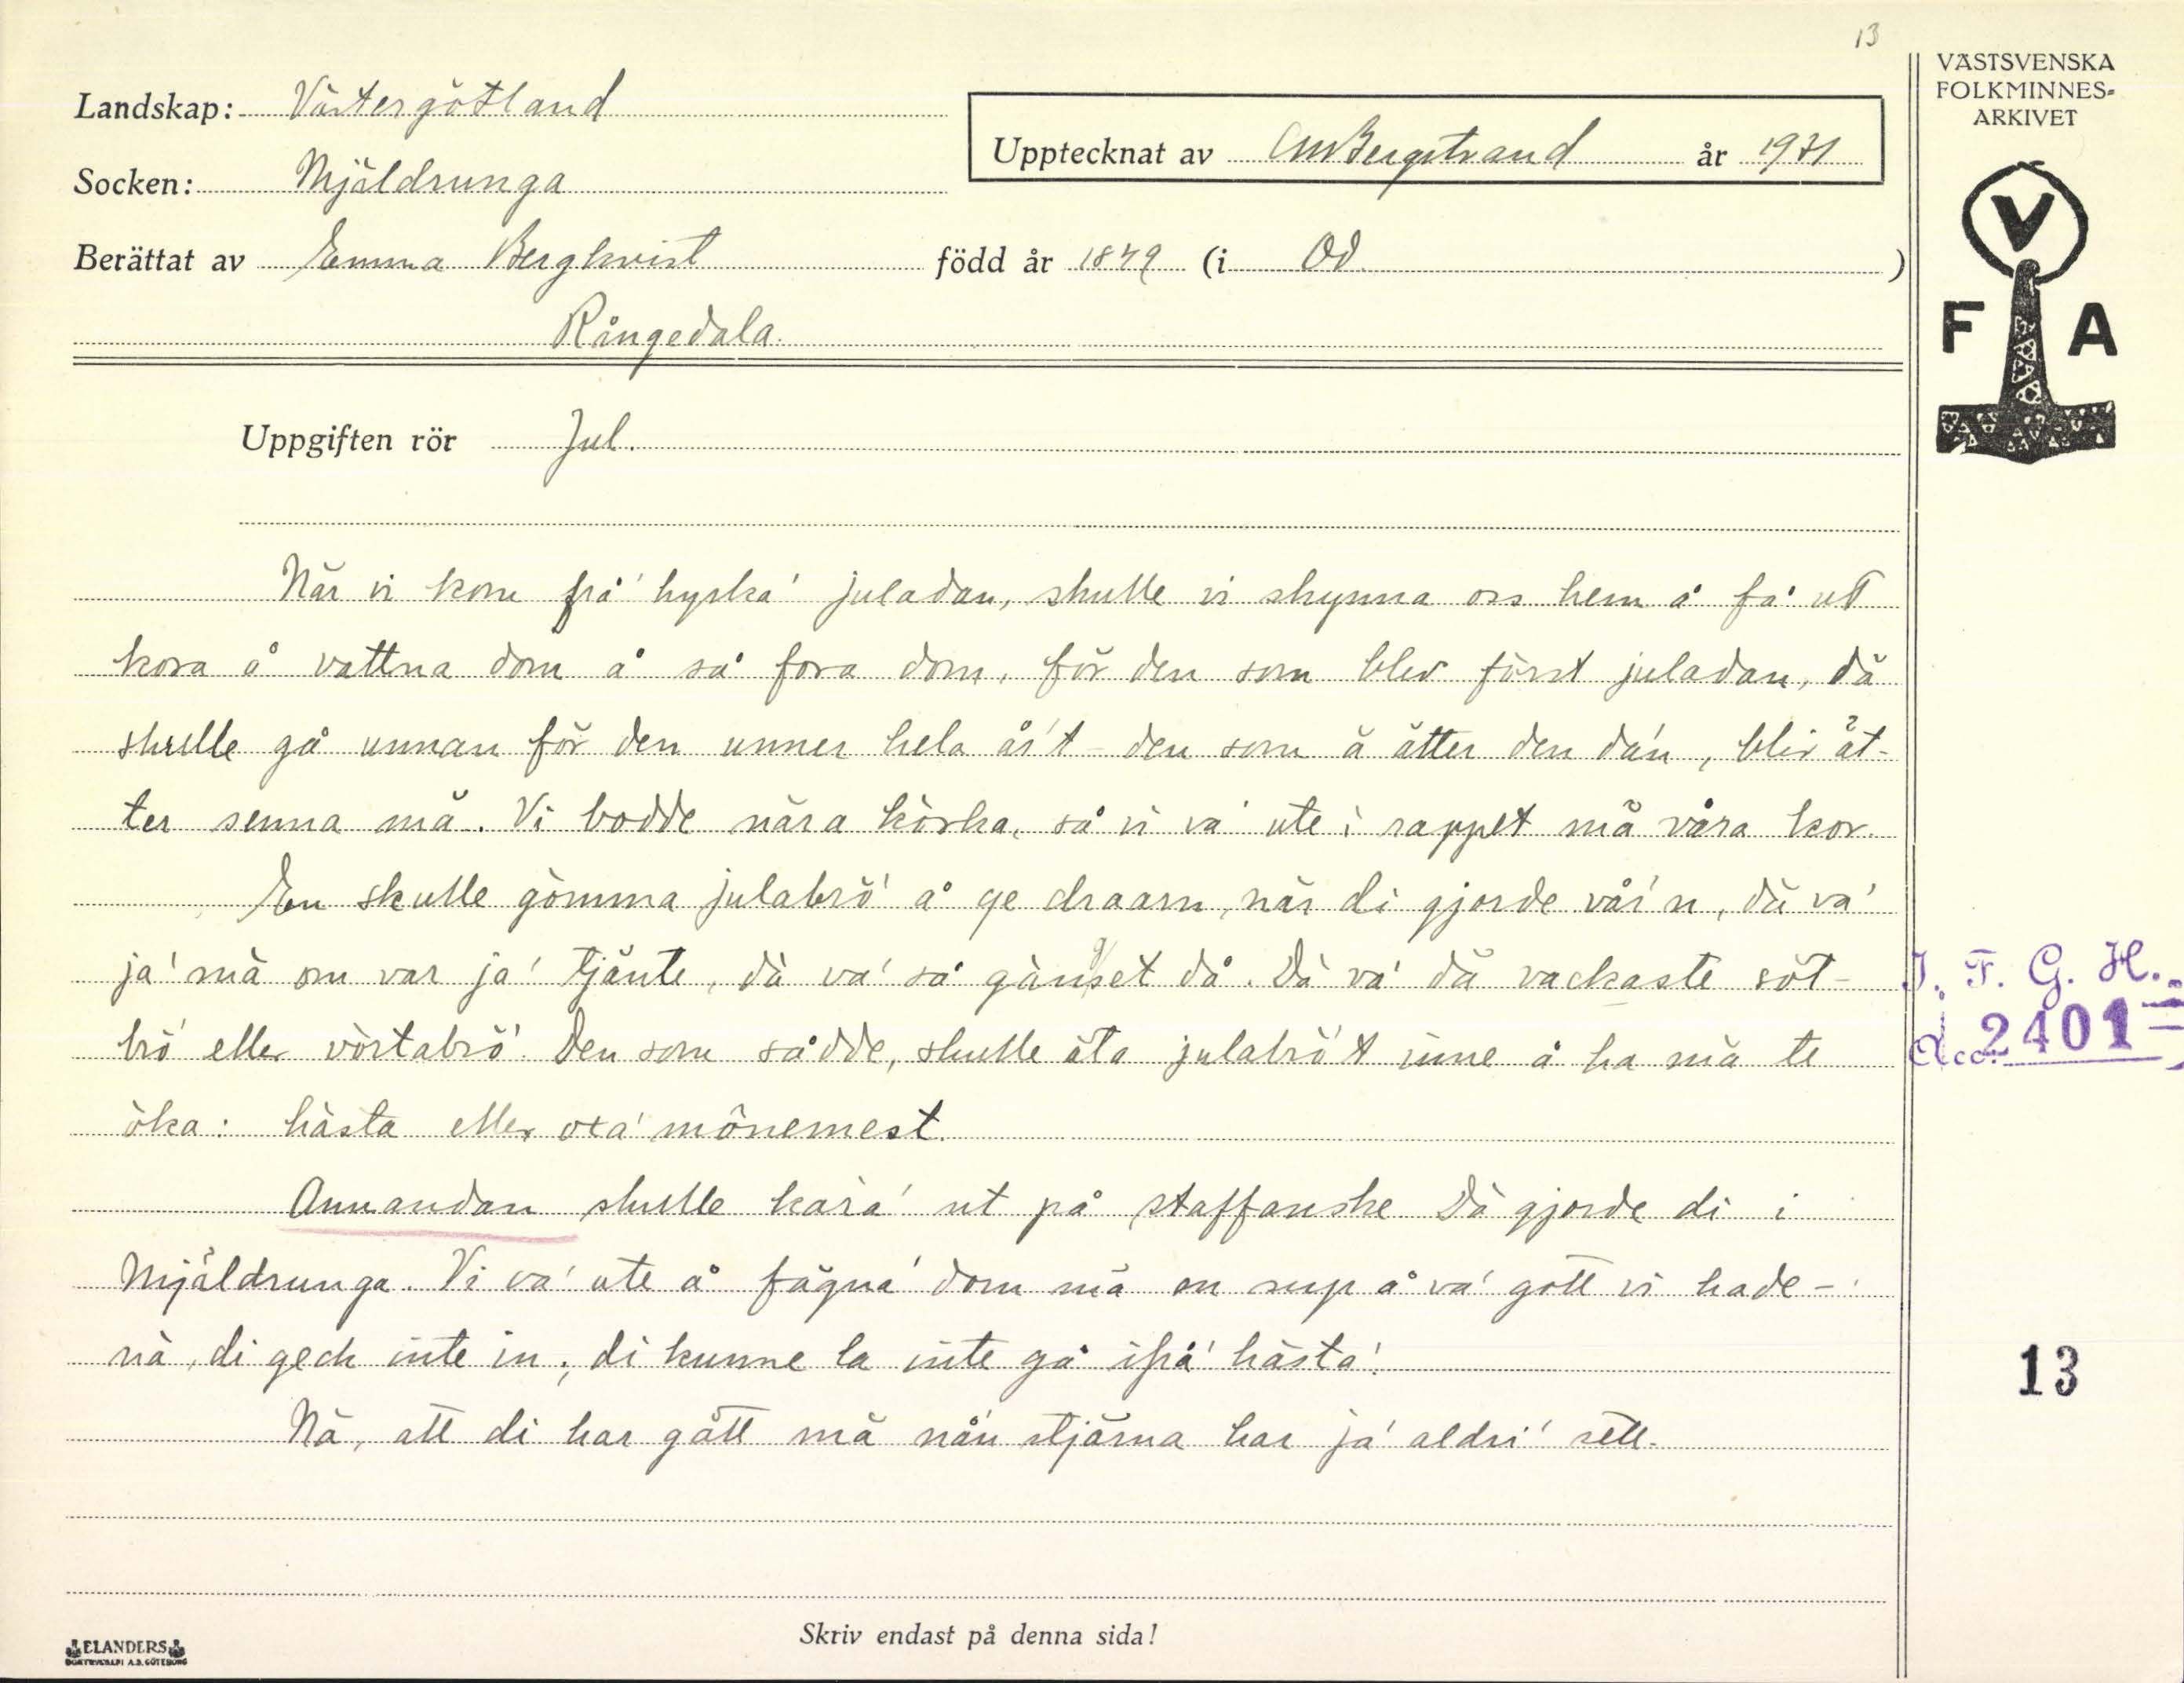 13
VÄSTSVENSKA
FOLKMINNES-
ARKIVET
Landskap: Västergötland
Upptecknat av CMBergstrand år 1931
Socken: Mjäldrunga
Berättat av Emma Bergkvist född år 1849 (i Od )
Rångedala.
V
F A
Uppgiften rör Jul.
När vi kom frå' kyrka' juladan, skulle vi skynna oss hem å få' ut
kora å vattna dom å så' fora dom, för den som blev först juladan, dä
skulle gå unnan för den unner hela år't - den som ä ätter den da'n, blir ät-
ter senna mä. Vi bodde nära körka, så vi va' ute i rappet mä våra kor.
En skulle gömma julabrö' å ge draarn, när di gjorde vår'n, dä va'
ja' mä om var ja' tjänte, dä va' så gänget då. Dä va' dä vackaste söt-
brö' eller vörtabrö'. Den som sådde, skulle äta julabrö't inne å ha mä te
öka: hästa eller oxa' mönemest.
J. F. G. H.
Acc. 2401
Annandan skulle kara' ut på staffanske. Dä gjorde di i
Mjäldrunga. Vi va' ute å fägna' dom mä en sup å va' gott vi hade -
nä, di geck inte in, di kunne la inte gå ifrå' hästa'.
13
Nä, att di har gått mä nå'n stjärna har ja' aldri' sett.
Skriv endast på denna sida!
ELANDERS
BOKTRYCKERI A.B. GÖTEBORG